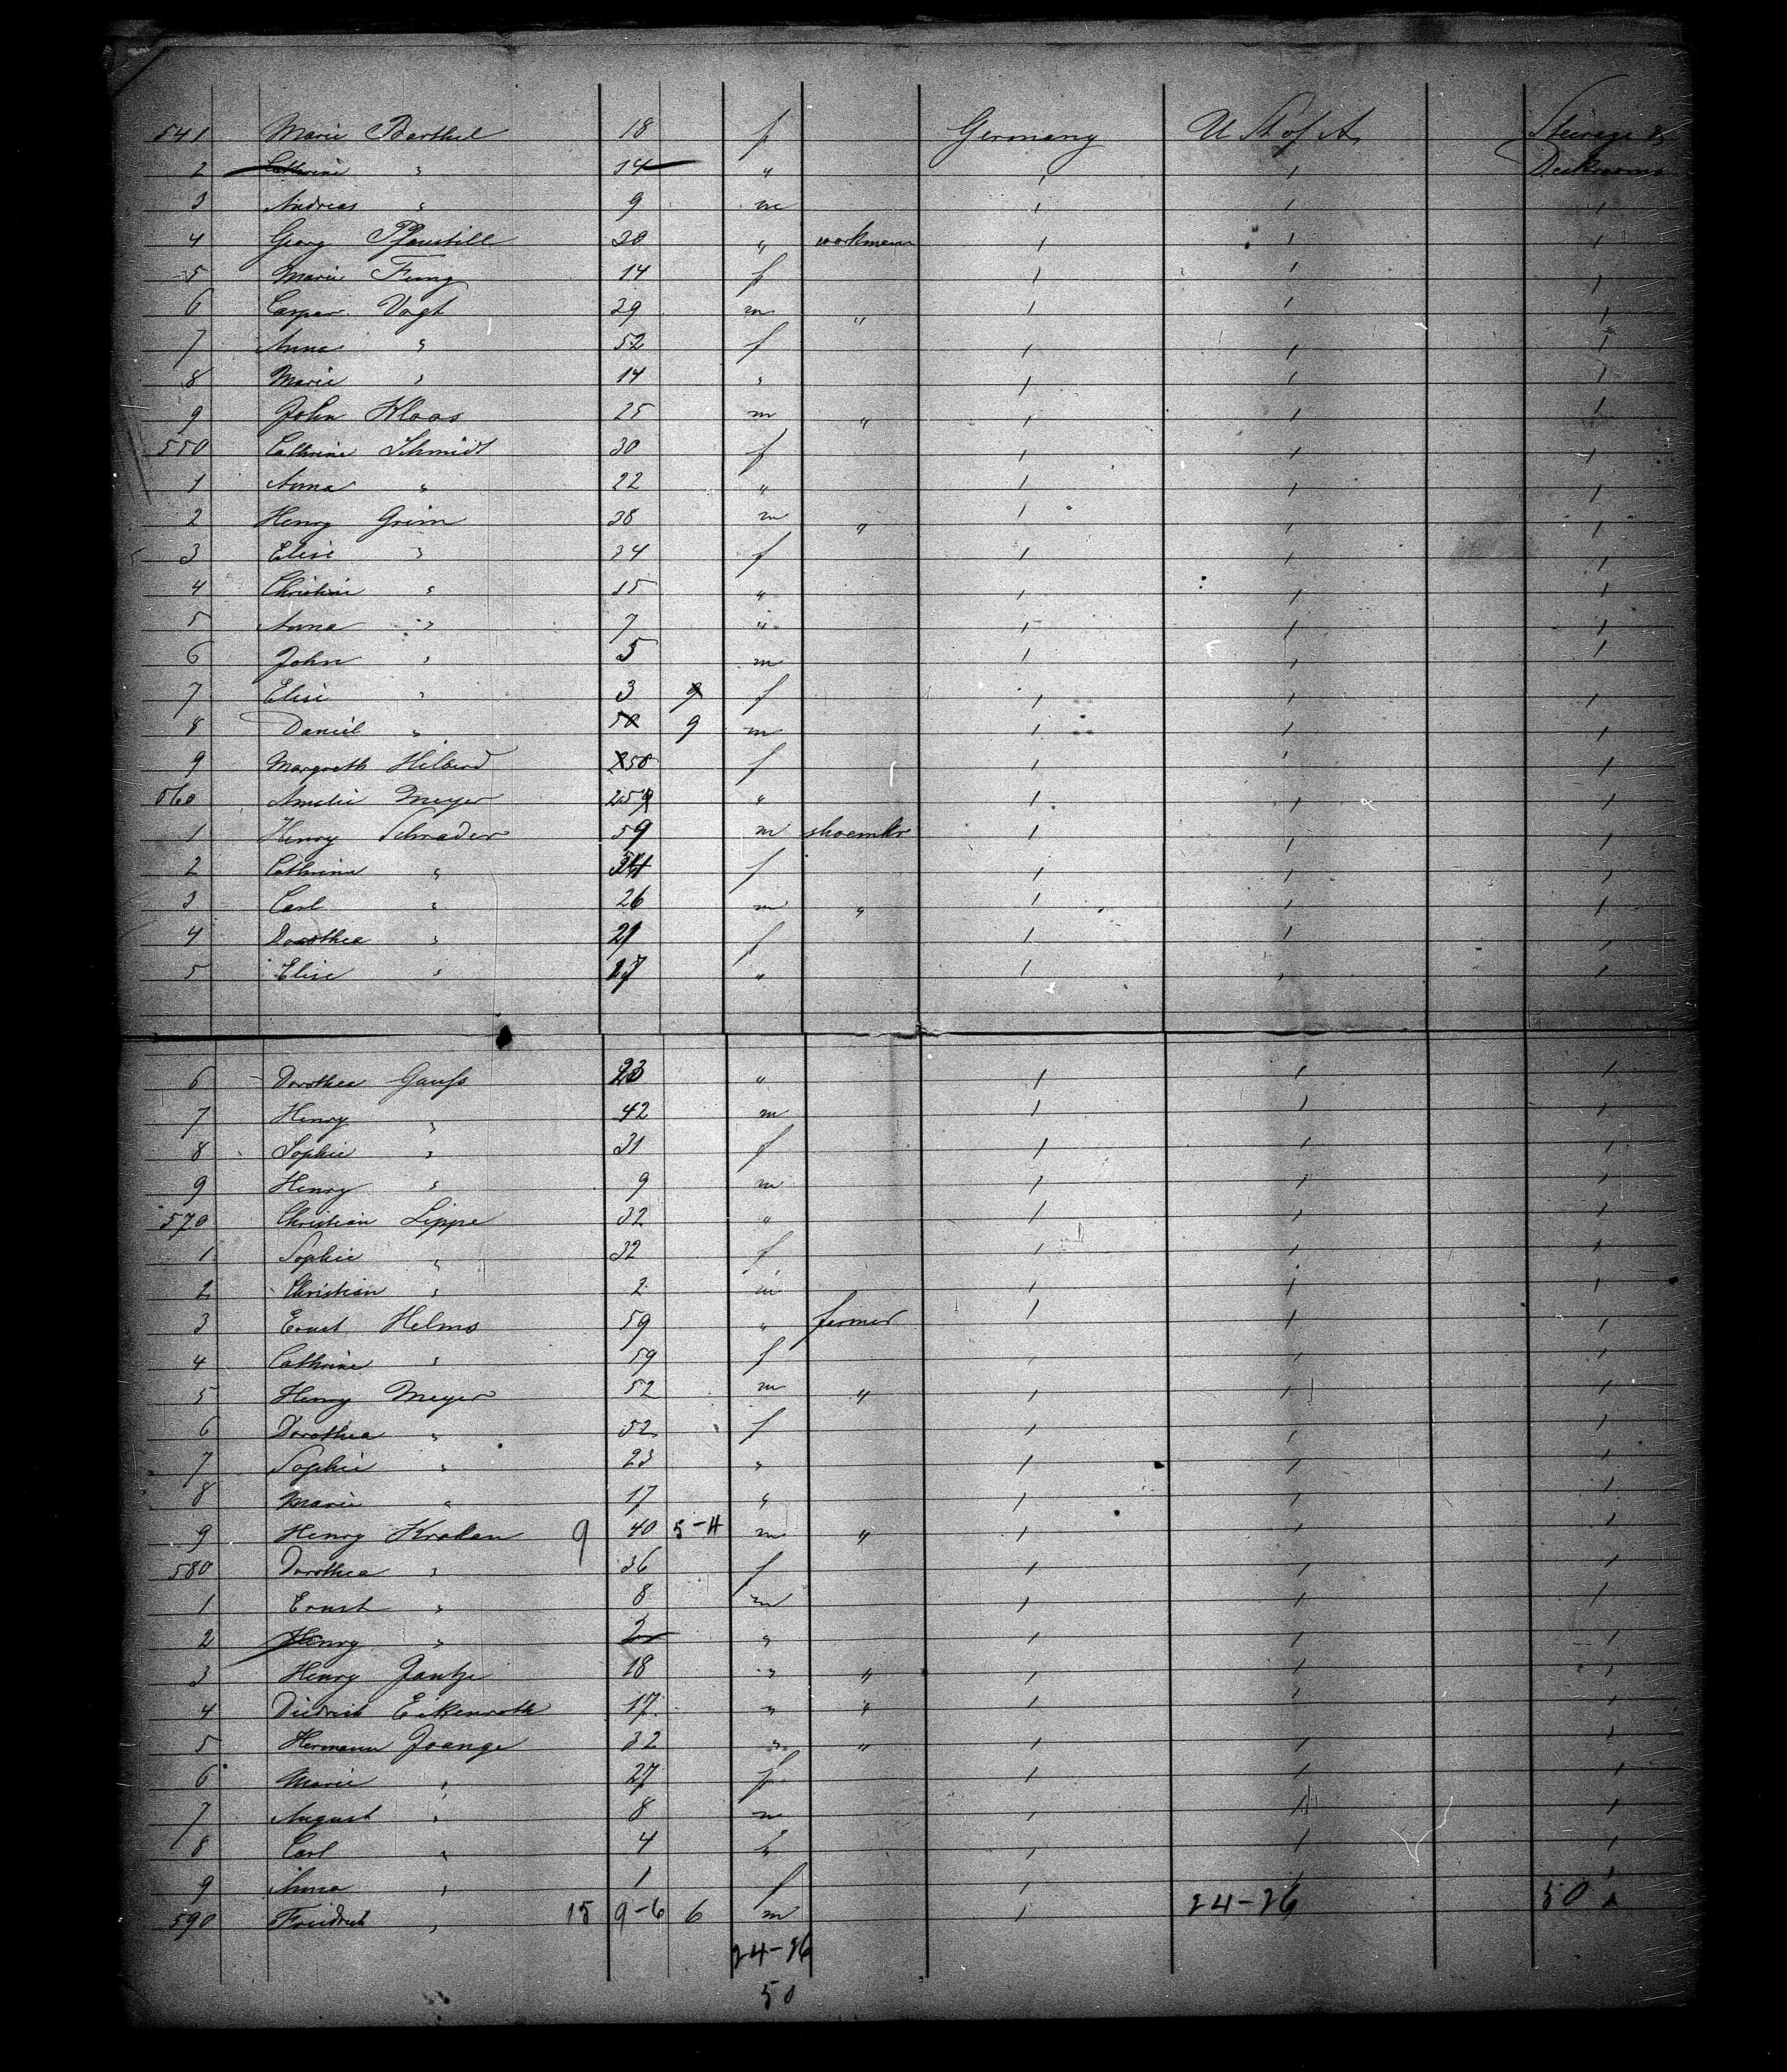 541 Marie Barthel 18 f Germany U St of A. Steerage &
2 Cathrine " 14 " Deckrooms
3 Andreas " 9 m
4 Georg Pfanstill 30 " workmen
5 Marie Fung 14 f
6 Casper Vogt 29 m "
7 Anna " 52 f
8 Marie " 14 "
9 John Klaas 25 m "
550 Cathrine Schmidt 30 f
1 Anna " 22 "
2 Henry Grim 38 m "
3 Elise " 34 f
4 Christine " 15 "
5 Anna " 7 "
6 John " 5 m
7 Elise " 3 f
8 Daniel " 9 m
9 Margreth Hilberd 50 f
560 Amelie Meyer 25 "
1 Henry Schrader 59 m shoemkr
2 Cathrine " f
3 Carl " 26 m "
4 Dorothea " 21 f
5 Elise " "
6 Dorothea Gauss 23 "
7 Henry " 42 m
8 Sophie " 31 f
9 Henry " 9 m
570 Christian Lippe 32 "
1 Sophie " 32 f
2 Christian " 2 m
3 Ernst Helms 59 " farmer
4 Cathrine " 59 f
5 Henry Meyer 52 m "
6 Dorothea " 52 f
7 Sophie " 23 "
8 Marie " 17 "
9 Henry Kraken 9 40 5-4 m "
580 Dorothea " 36 f
1 Ernst " 8 m
2 Henry " "
3 Henry Jantze 18 " "
4 Diedrich Eikenroth 17 " "
5 Hermann Joange 32 " "
6 Marie " 27 f
7 August " 8 m
8 Carl " 4 "
9 Anna " 1 f
590 Friedrich " 15 9-6 6 m 24-26 50
24-26
50